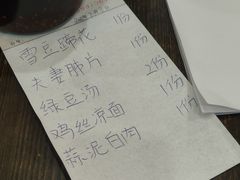 雪豆蹄花 1份
夫妻肺片 1份
绿豆汤 2份
鸡丝凉面 1份
蒜泥白肉 1份